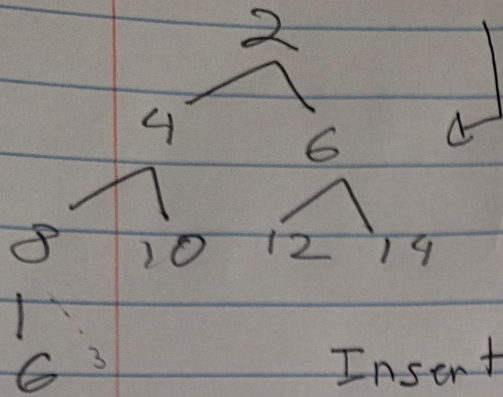 2
4 6
8 10 12 14
6 3
Insert